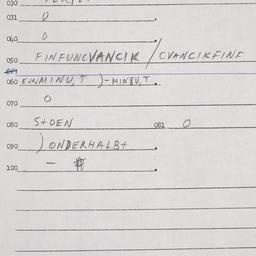 030
031 0
040 0
050 FINFUNCVANCIK / CVANCIKFINF
060 EJNMINU,T )-MINBU,T.
070 0
080 S+OEN 081 0
090 ) ONDERHALB+
100 - #